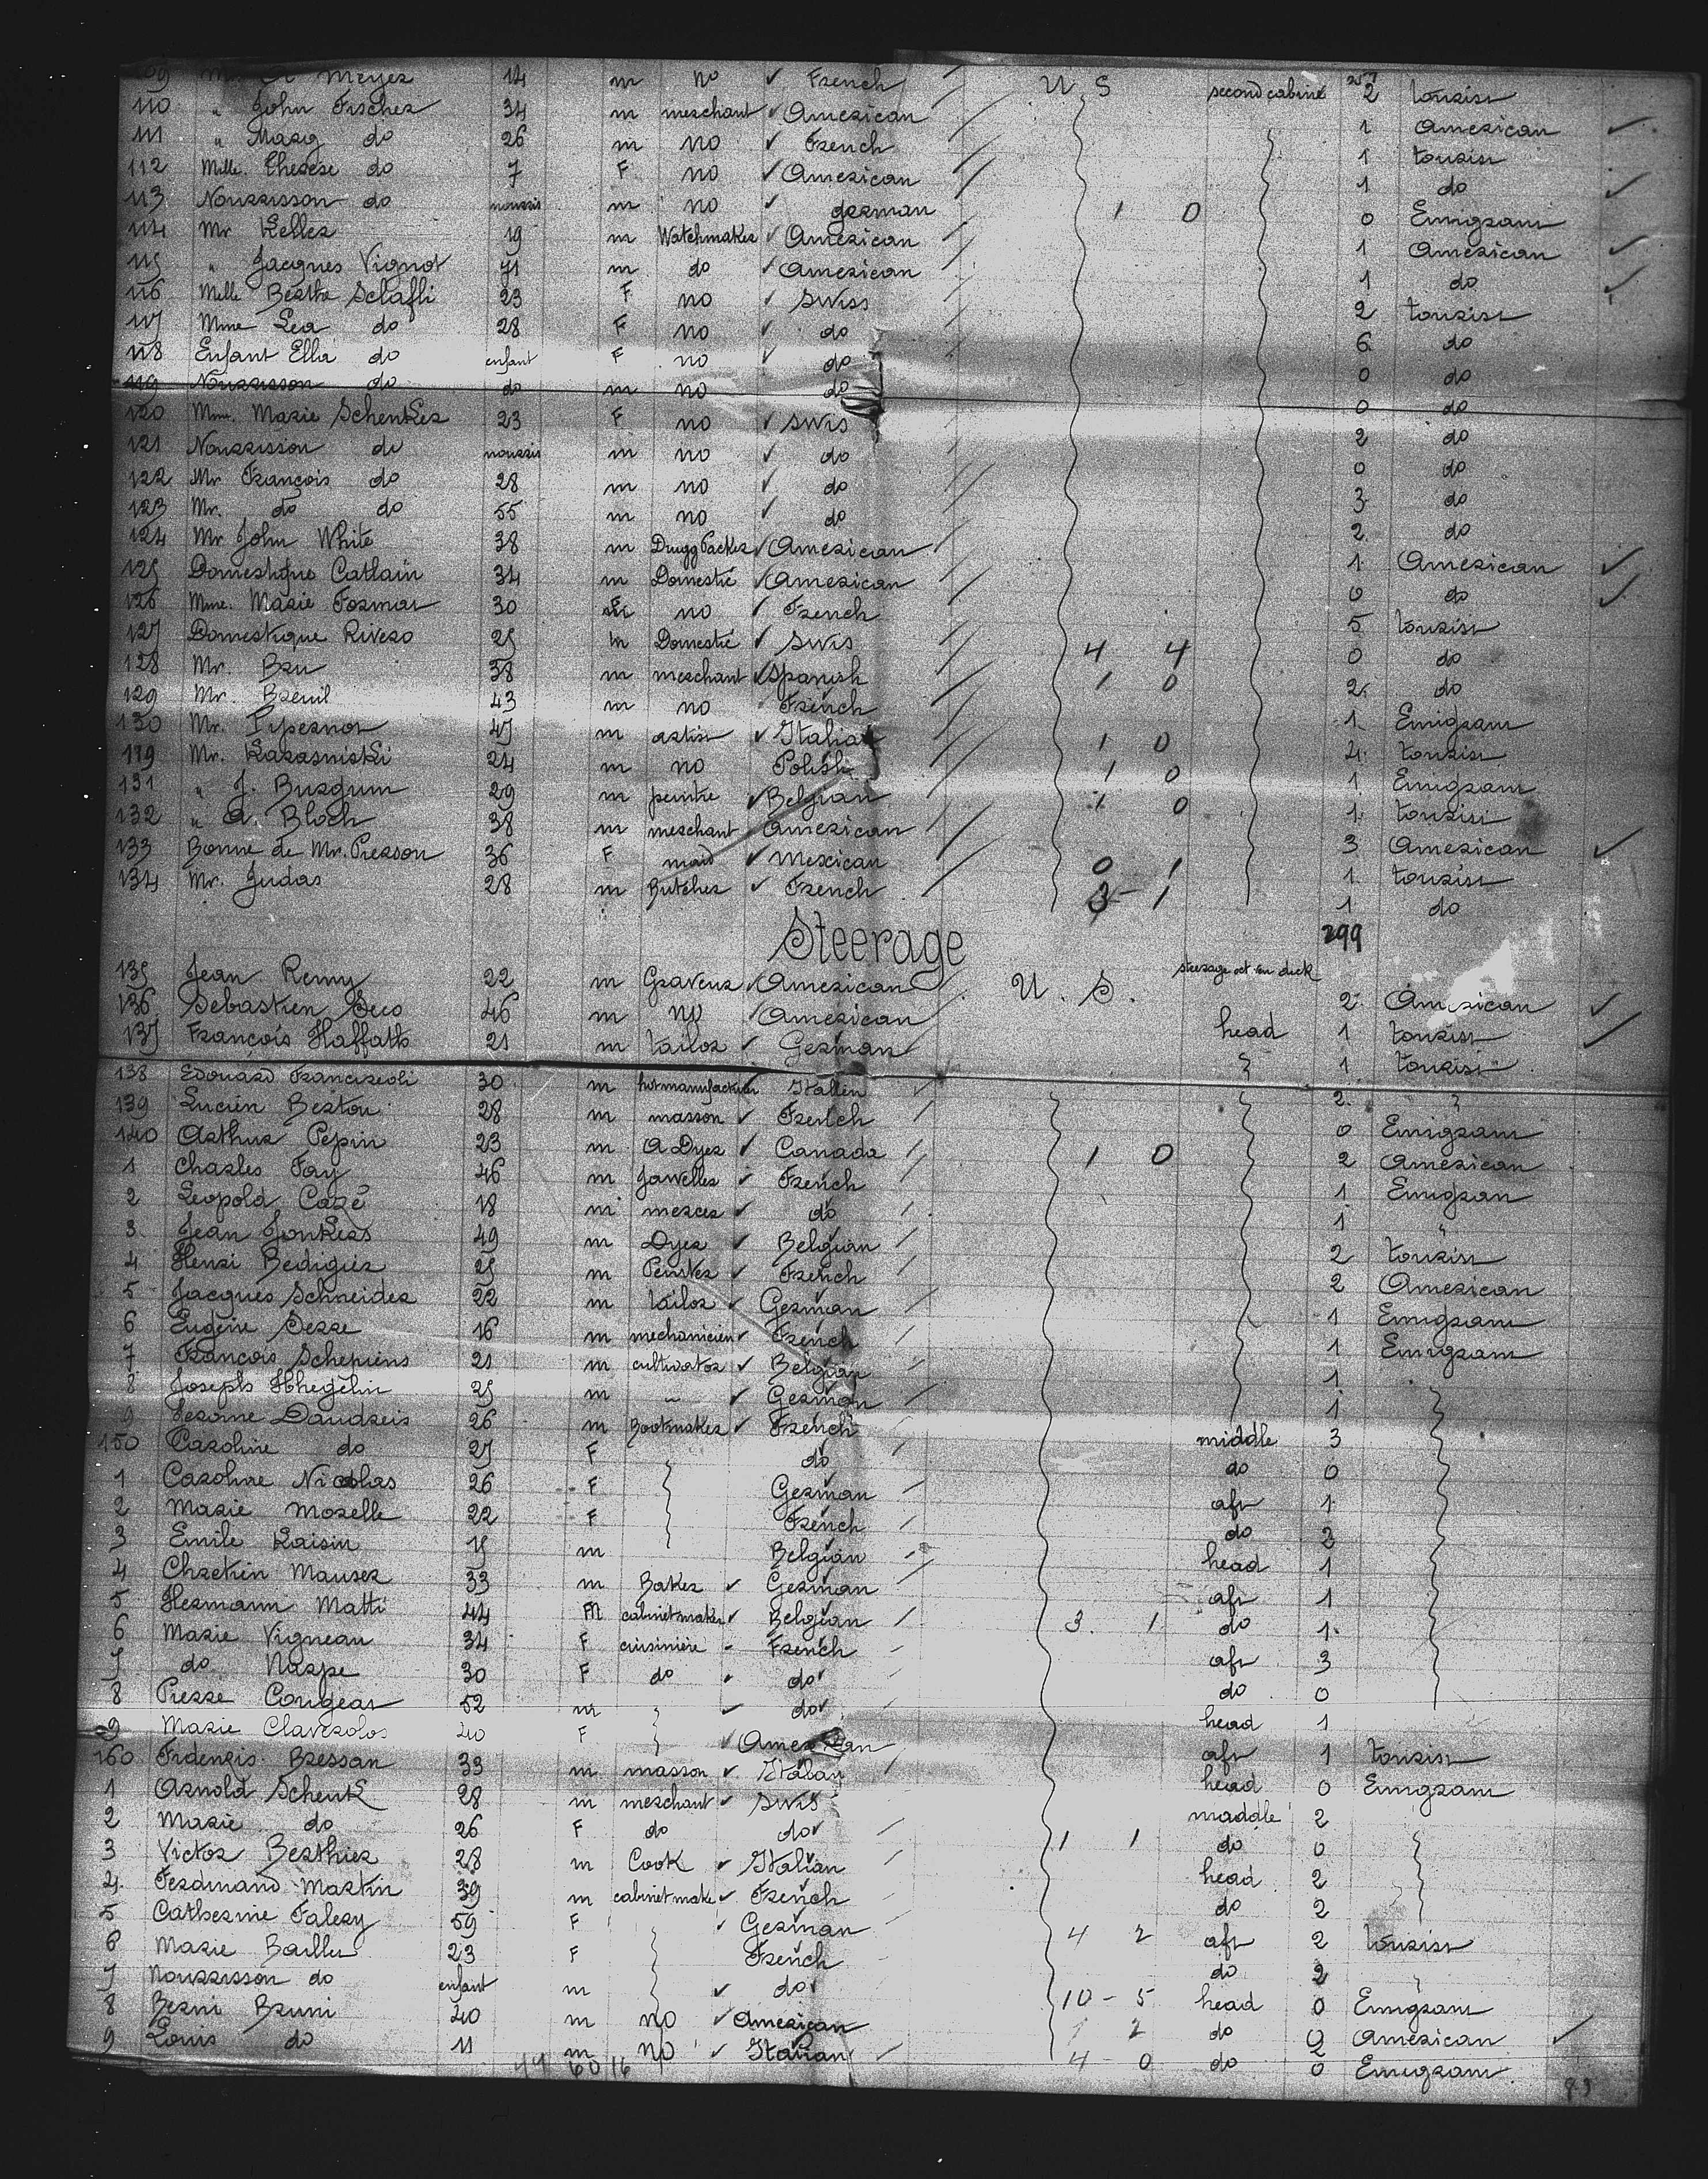 109 Mr A Meyer 14 m no ✓ French U.S second cabine 2 tourist
110 " John Fischer 34 m merchant ✓ American 1 American ✓
111 " Mary do 26 m no ✓ French 1 tourist
112 Melle. Therese do 7 F no ✓ American 1 do ✓
113 Nourrisson do nourris m no ✓ german 1 0 0 Emigram
114 Mr Keller 19 m Watchmaker ✓ American 1 American ✓
115 " Jacques Vignot 71 m do ✓ American 1 do ✓
116 Melle Berthe Schafli 23 F no ✓ Swiss 2 tourist
117 Mme Lea do 28 F no ✓ do 6 do
118 Enfant Ella do enfant F no ✓ do 0 do
119 Nourrisson do do m no do 0 do
120 Mme. Marie Schenker 23 F no ✓ Swis 2 do
121 Nourrisson do nourris m no ✓ do 0 do
122 Mr François do 28 m no ✓ do 3 do
123 Mr. do do 55 m no ✓ do 2 do
124 Mr John White 38 m Drugg Packer ✓ American 1 American ✓
125 Domestique Catlain 34 m Domestic ✓ American 0 do ✓
126 Mme. Marie Formar 30 no ✓ French 5 tourist
127 Domestique Rivero 25 m Domestic ✓ Swis 4 4 0 do
128 Mr. Bru 38 m merchant ✓ Spanish 1 0 2 do
129 Mr. Breuil 43 m no French 1 Emigram
130 Mr. Pypernor 47 m artist ✓ Italian 1 0 4 tourist
119 Mr. Karasniski 24 m no Polish 1 0 1 Emigram
131 " J. Burgum 29 m peintre ✓ Belgian 1 0 1 tourist
132 " A. Bloch 38 m merchant American 3 American ✓
133 Bonne de Mr. Pierson 36 F maid ✓ Mexican 0 1 1 tourist
134 Mr. Judas 28 m Butcher ✓ French 3 - 1 1 do
299
Steerage
135 Jean Remy 22 m Graveur ✓ American U.S. steerage deck 2 American ✓
136 Sebastien Seco 46 m no ✓ American head 1 tourist ✓
137 François Haffath 21 m tailor ✓ German 1 tourist
138 Edouard Francireoli 30 m hotmanufacturer Italien 2 "
139 Lucien Berton 28 m masson ✓ French 0 Emigram
140 Arthur Pepin 23 m A Dyer ✓ Canada 1 0 2 American
1 Charles Fay 46 m Jaweller ✓ French 1 Emigran
2 Leopold Cazé 18 m mercer ✓ do 1 "
3 Jean Jonkers 49 m Dyer ✓ Belgian 2 tourist
4 Henri Bedigier 25 m Peinter ✓ French 2 American
5 Jacques Schneider 22 m tailor ✓ German 1 Emigram
6 Eugène Serre 16 m mechanicien ✓ French 1 Emigram
7 François Schepiens 21 m cultivator ✓ Belgian 1
8 Joseph Hhegelin 25 m " ✓ German 1
9 Jerome Daudreis 26 m Bootmaker ✓ French middle 3
150 Caroline do 27 F do do 0
1 Caroline Nicolas 26 F German aft 1
2 Marie Morelle 22 F French do 2
3 Emile Kaisin 15 m Belgian head 1
4 Chretien Mauser 33 m Baker ✓ German aft 1
5 Hermann Matti 44 m cabinetmaker ✓ Belgian 3. 1 do 1
6 Marie Vigneau 34 F cuisinière French aft 3
7 do Narpe 30 F do do do 0
8 Pierre Congear 52 m ✓ do head 1
9 Marie Claverolos 40 F ✓ American aft 1 tourist
160 Fidenzis Bressan 33 m masson ✓ Italan head 0 Emigram
1 Arnold Schenk 28 m merchant ✓ Swis maddle 2
2 Marie do 26 F do do 1 1 do 0
3 Victor Berthier 28 m Cook ✓ Italian head 2
4. Ferdinand Martin 39 m cabinetmake ✓ French do 2
5 Catherine Falery 59 F ✓ German 4 2 aft 2 tourist
6 Marie Bailler 23 F French do 2 "
7 Nourrisson do enfant m ✓ do 10 - 5 head 0 Emigram
8 Berni Bruni 40 m no ✓ American 1 2 do 2 American ✓
9 Louis do 11 m no ✓ Italian 4 - 0 do 0 Emigram
60 16